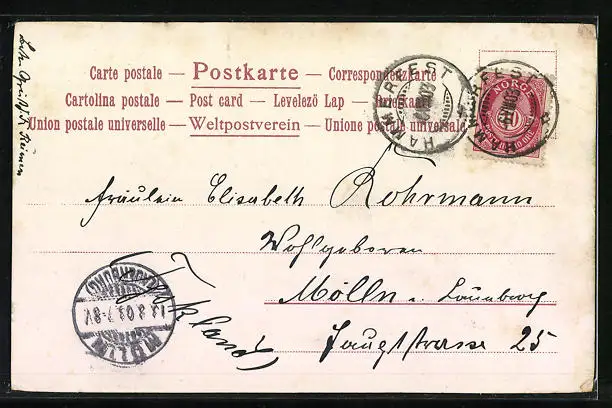 Carte postale — Postkarte — Correspondenzkarte
Cartolina postale — Post card — Levelező Lap —
Union postale universelle — Weltpostverein — Unione postale universale
HAMMERFEST
HAMMERFEST
NORGE
Fräulein Elisabeth Rohrmann
Wohlgeboren
Mölln i. Lauenburg
Hauptstrasse 25
Tyskland
MÖLLN
(LAUENBURG)
13.8.03.7-8.V.